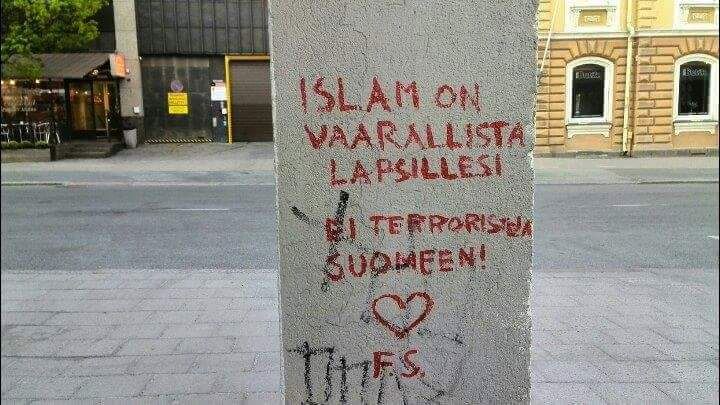 ISLAM ON
VAARALLISTA
LAPSILLESI
EI TERRORISTEJA
SUOMEEN!
F.S.